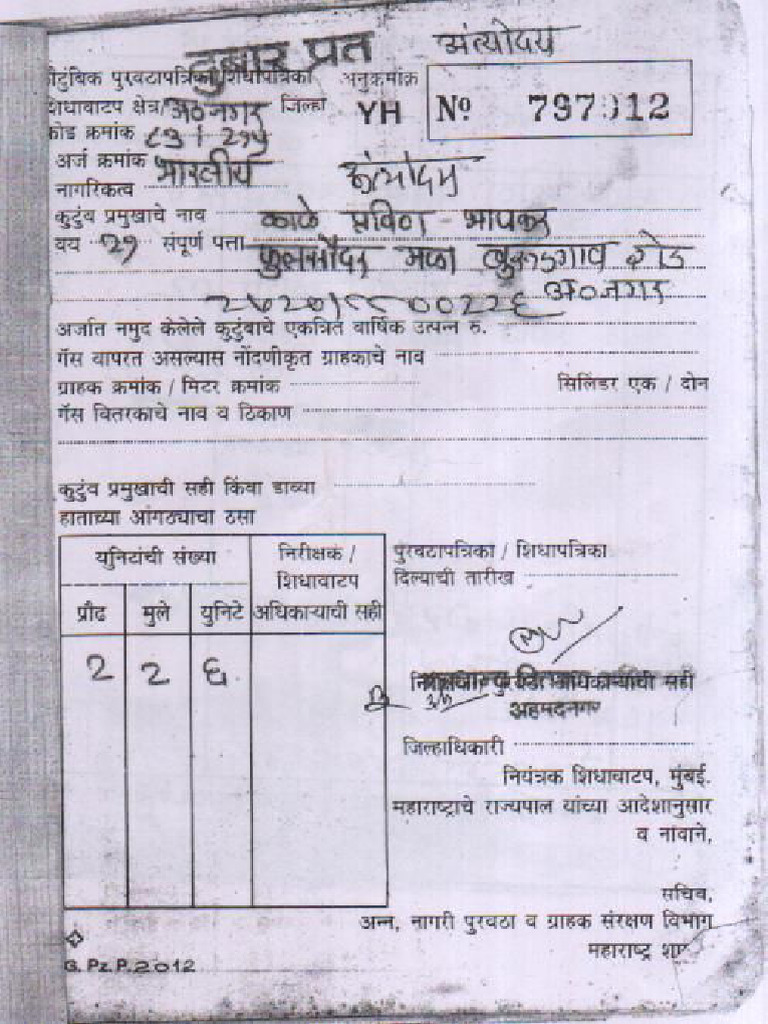 दुबार प्रत अंत्योदय
कौटुंबिक पुरवठापत्रिका/शिधापत्रिका अनुक्रमांक
शिधावाटप क्षेत्र/अ०नगर जिल्हा YH Nº 797912
कोड क्रमांक
अर्ज क्रमांक भारतीय अंत्योदय
नागरिकत्व
कुटुंब प्रमुखाचे नाव काळे प्रविण भापकर
वय 29 संपूर्ण पत्ता फुलसौंदर मळा बुरुडगाव रोड
अ०नगर
अर्जात नमुद केलेले कुटुंबाचे एकत्रित वार्षिक उत्पन्न रु.
गॅस वापरत असल्यास नोंदणीकृत ग्राहकाचे नाव
ग्राहक क्रमांक / मिटर क्रमांक सिलिंडर एक / दोन
गॅस वितरकाचे नाव व ठिकाण
कुटुंब प्रमुखाची सही किंवा डाव्या
हाताच्या आंगठ्याचा ठसा
युनिटांची संख्या निरीक्षक / शिधावाटप अधिकाऱ्याची सही
प्रौढ मुले युनिटे
2 2 ६
पुरवठापत्रिका / शिधापत्रिका
दिल्याची तारीख
अधिकाऱ्याची सही
अहमदनगर
जिल्हाधिकारी
नियंत्रक शिधावाटप, मुंबई.
महाराष्ट्राचे राज्यपाल यांच्या आदेशानुसार
व नांवाने,
सचिव,
अन्न, नागरी पुरवठा व ग्राहक संरक्षण विभाग
महाराष्ट्र
G. Pz. P. 2012